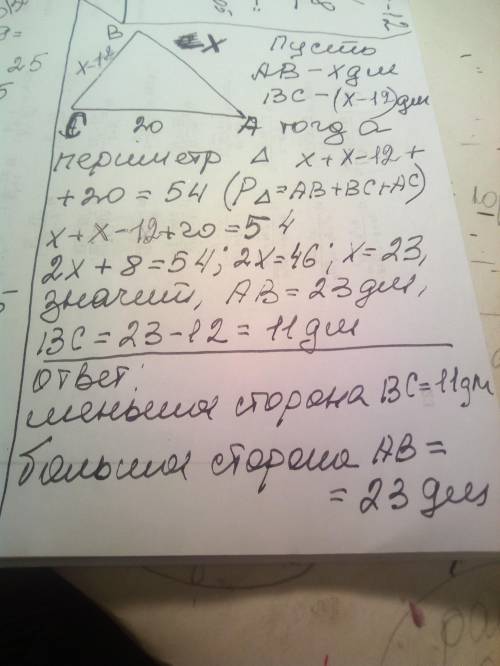 B
x-12
x
C
20
A
Пусть
AB - x дм
BC - (x-12) дм
тогда
периметр Δ x+x-12+
+20=54 (PΔ=AB+BC+AC)
x+x-12+20=54
2x+8=54; 2x=46; x=23,
значит, AB=23 дм,
BC=23-12=11 дм
ответ:
меньшая сторона BC=11 дм
большая сторона AB=
=23 дм
25